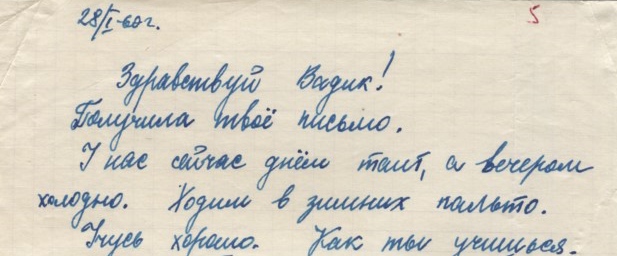 28/I-60г. 5
Здравствуй Вадик!
Получила твоё письмо.
У нас сейчас днём тает, а вечером
холодно. Ходим в зимних пальто.
Учусь хорошо. Как ты учишься.